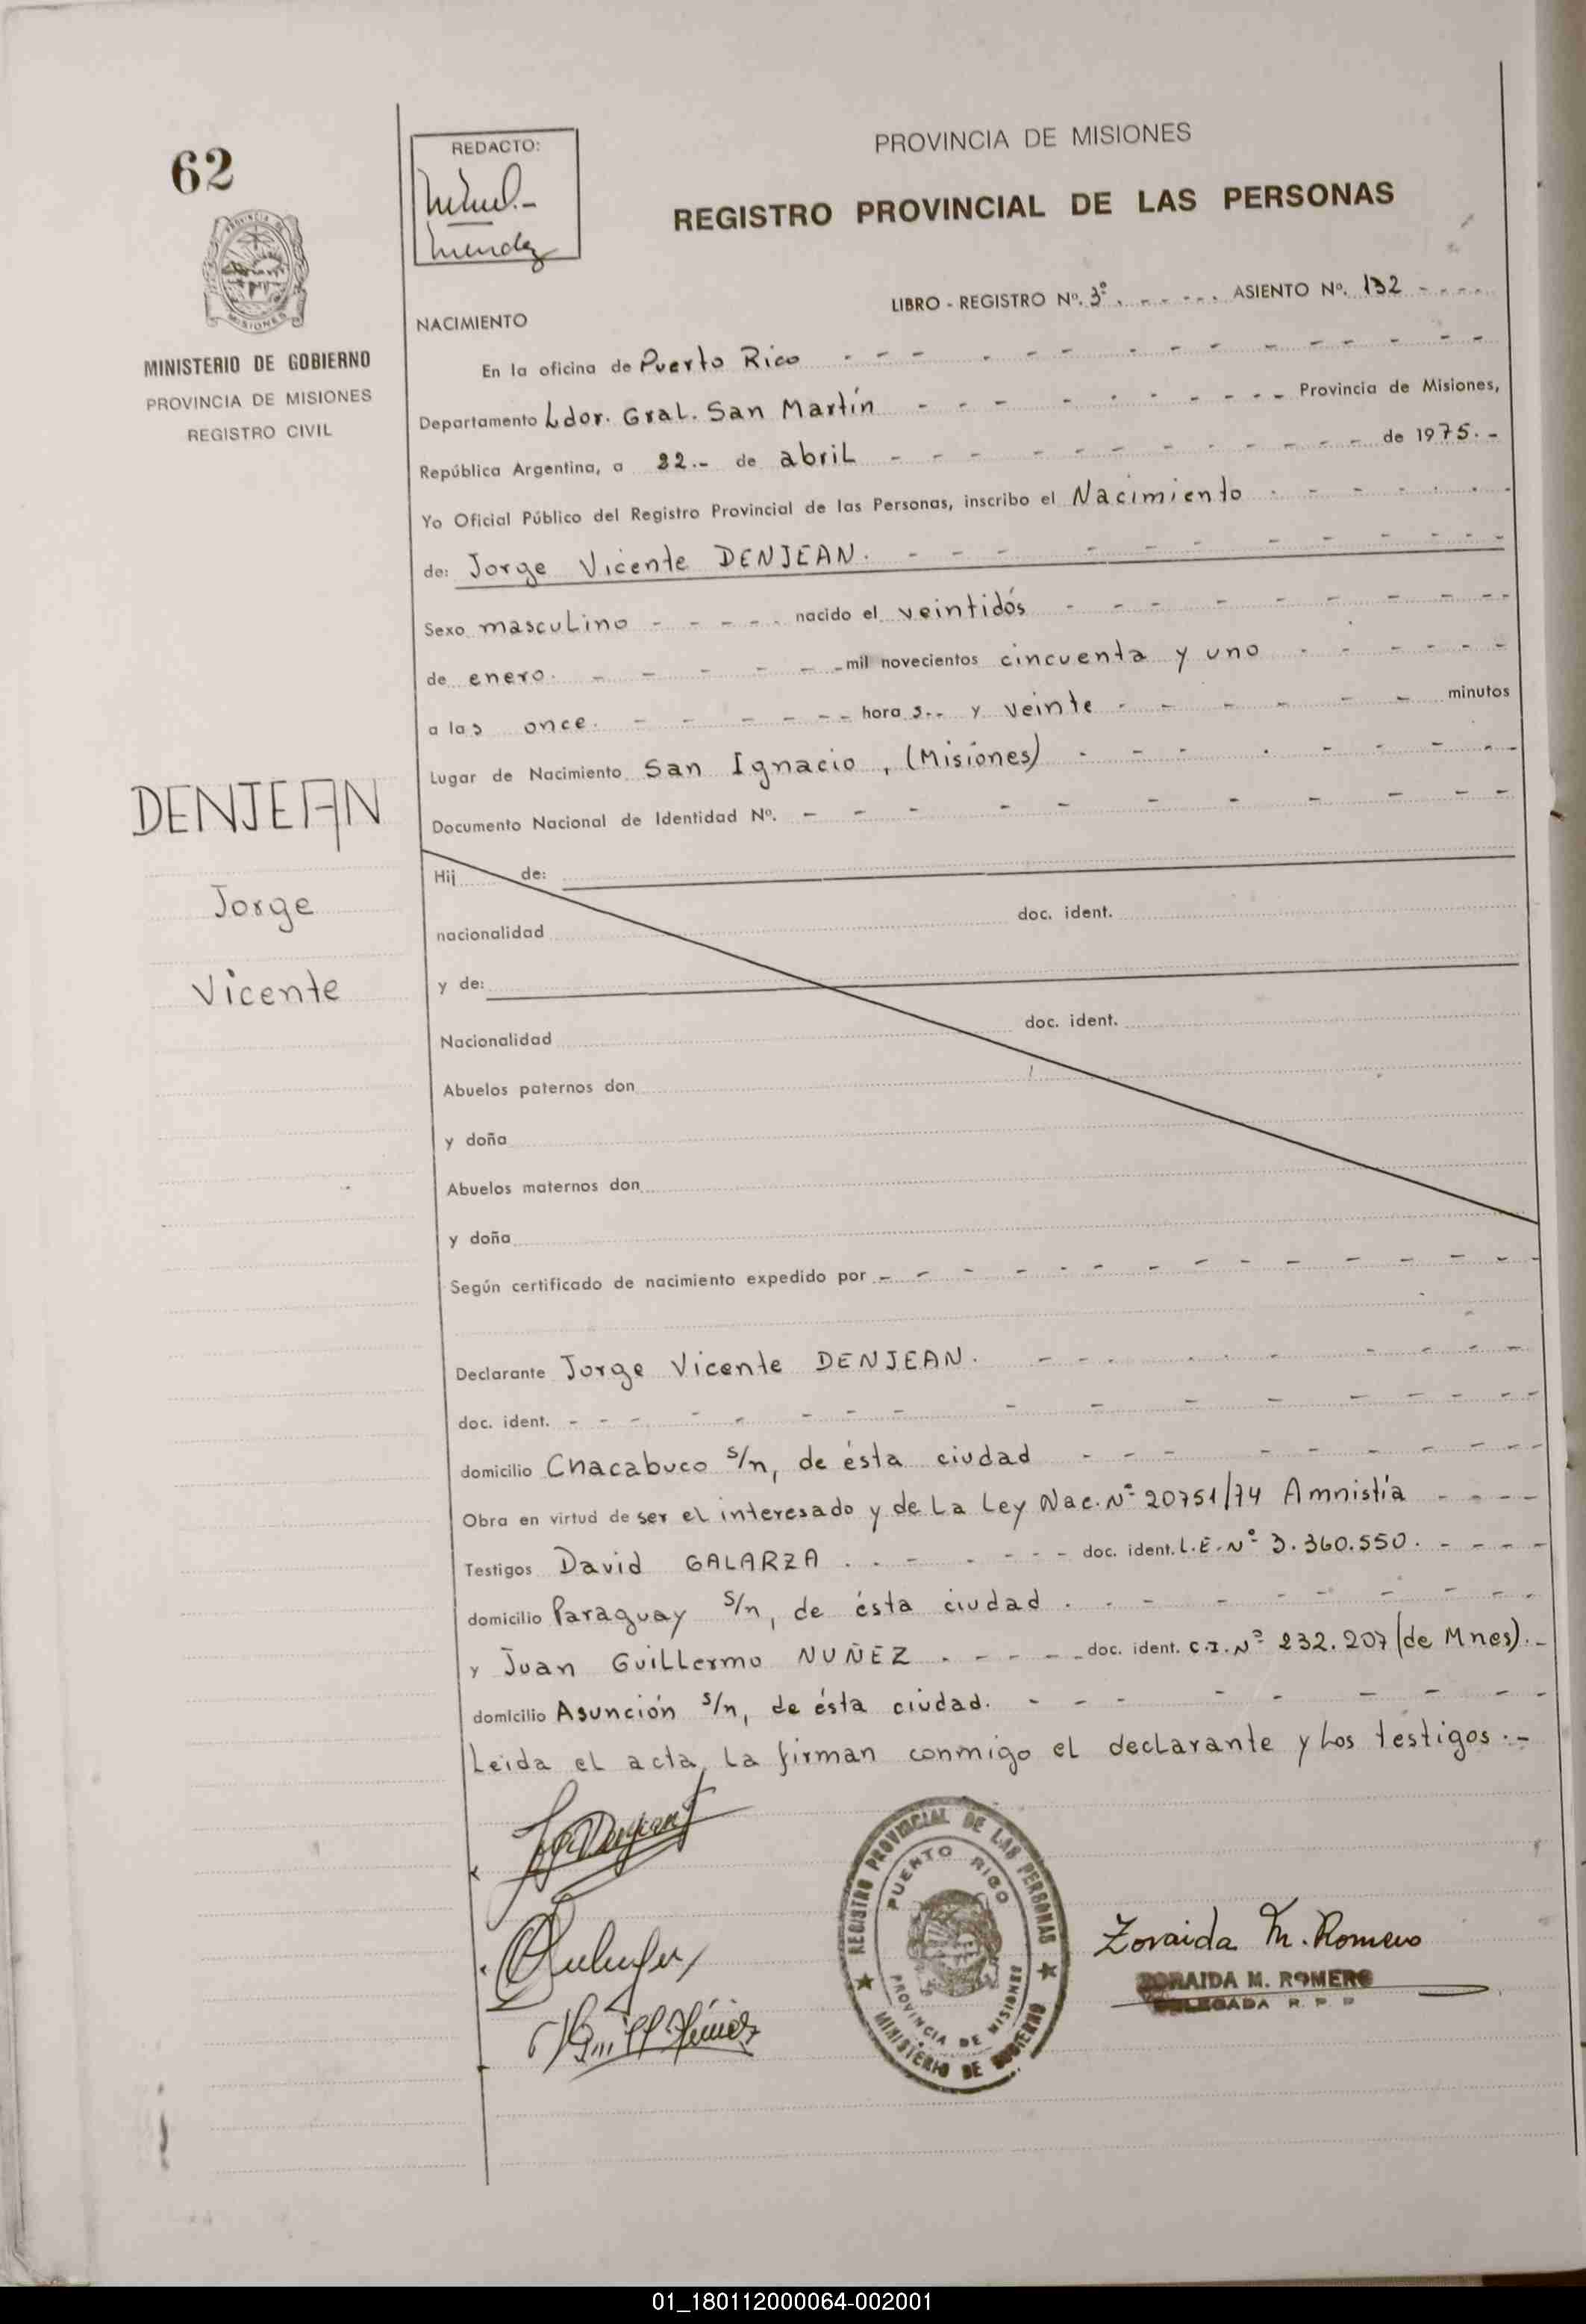 62
REDACTO:
Mendez
PROVINCIA DE MISIONES
REGISTRO PROVINCIAL DE LAS PERSONAS
PROVINCIA DE MISIONES
MINISTERIO DE GOBIERNO
PROVINCIA DE MISIONES
REGISTRO CIVIL
LIBRO - REGISTRO Nº. 3º. - - - - - . ASIENTO Nº. 132 - - - -
NACIMIENTO
En la oficina de Puerto Rico - - - - - - - - - - - - - -
Departamento Ldor. Gral. San Martín - - - - - - - - - - Provincia de Misiones,
República Argentina, a 22.- de abril - - - - - - - - - - - de 1975.-
Yo Oficial Público del Registro Provincial de las Personas, inscribo el Nacimiento - - - - - -
de: Jorge Vicente DENJEAN. - - - - - - - - - - - - -
Sexo masculino - - - - - nacido el veintidós - - - - - - - - - -
de enero. - - - - - - mil novecientos cincuenta y uno - - - - - -
a las once. - - - - - - hora s.- y veinte - - - - - - minutos
Lugar de Nacimiento San Ignacio, (Misiones) - - - - - - - - -
Documento Nacional de Identidad Nº. - - - - - - - - - - -
DENJEAN
Jorge
Vicente
Hij de:
nacionalidad doc. ident.
y de:
Nacionalidad doc. ident.
Abuelos paternos don
y doña
Abuelos maternos don
y doña
Según certificado de nacimiento expedido por - - - - - - - - - - - - -
Declarante Jorge Vicente DENJEAN. - - - - - - - - -
doc. ident. - - - - - - - - - - - - - - - -
domicilio Chacabuco s/n, de ésta ciudad - - - - - - - - - -
Obra en virtud de ser el interesado y de la Ley Nac. Nº 20751/74 Amnistía - - - -
Testigos David GALARZA . - - - - - - doc. ident. L.E. Nº 3.360.550. - - - -
domicilio Paraguay s/n, de ésta ciudad . - - - - - - - -
y Juan Guillermo NUÑEZ . - - - - doc. ident. C.I. Nº 232.207 (de Mnes).-
domicilio Asunción s/n, de ésta ciudad. - - - - - - - - -
Leída el acta, la firman conmigo el declarante y los testigos.-
REGISTRO PROVINCIAL DE LAS PERSONAS
PUERTO RICO
PROVINCIA DE MISIONES
MINISTERIO DE GOBIERNO
Zoraida M. Romero
ZORAIDA M. ROMERO
DELEGADA R. P. P.
01_180112000064-002001